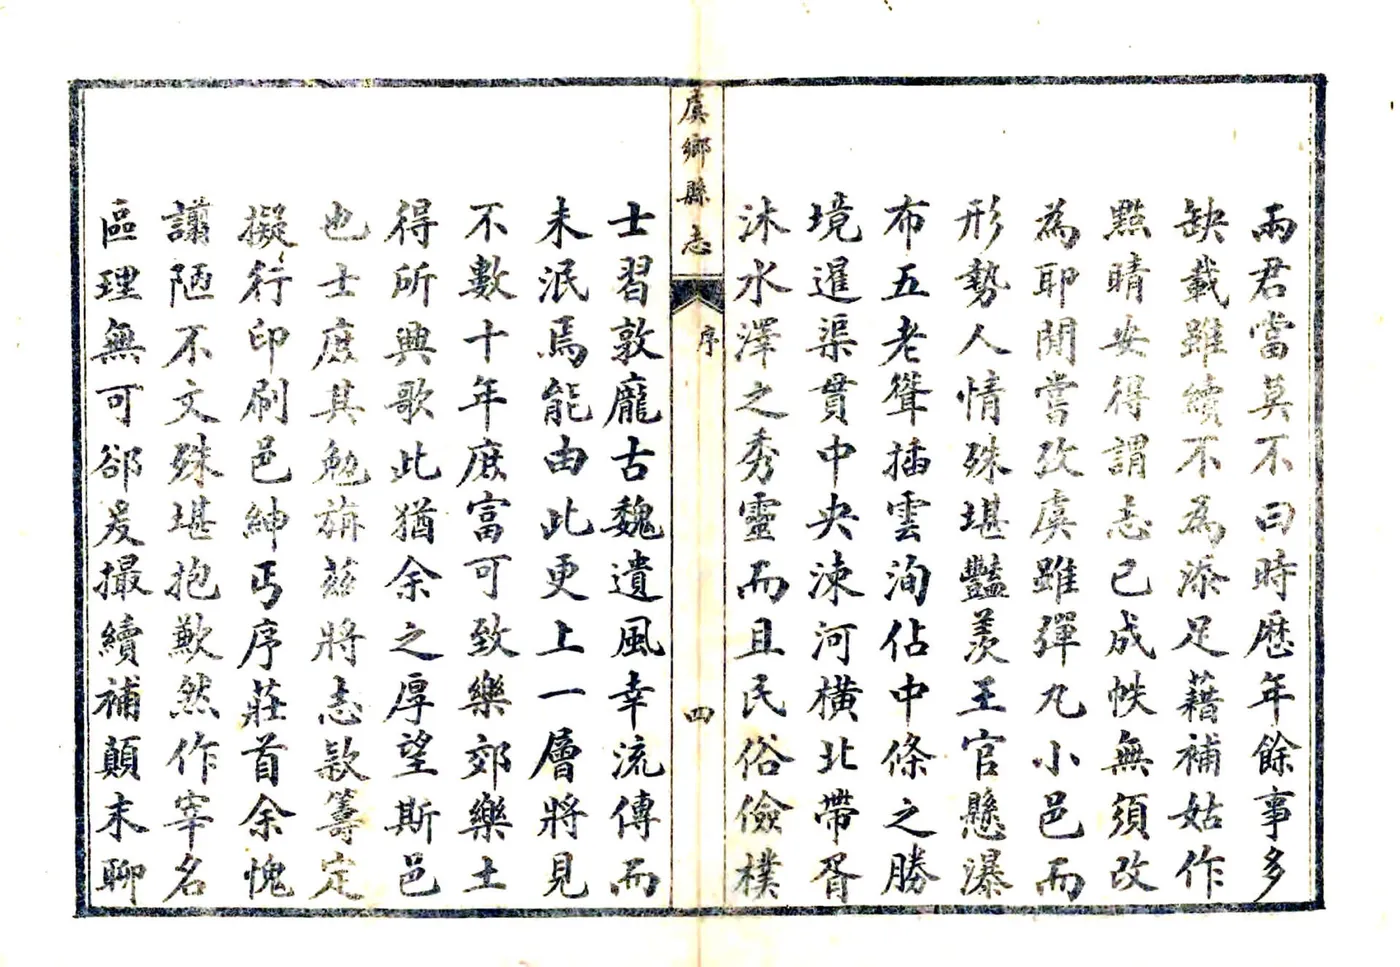 兩君當莫不曰時歷年餘事多
缺載雖續不為添足藉補姑作
點睛安得謂志已成帙無須改
為耶閒嘗攷虞雖彈丸小邑而
形勢人情殊堪豔羨王官懸瀑
布五老聳插雲洵佔中條之勝
境暹渠貫中央涑河橫北帶胥
沐水澤之秀靈而且民俗儉樸
虞鄉縣志
序
四
士習敦龐古魏遺風幸流傳而
未泯焉能由此更上一層將見
不數十年庶富可致樂郊樂土
得所興歌此猶余之厚望斯邑
也士庶其勉旃茲將志款籌定
擬行印刷邑紳丐序莊首余愧
譾陋不文殊堪抱歉然作宰名
區理無可卻爰撮續補顛末聊